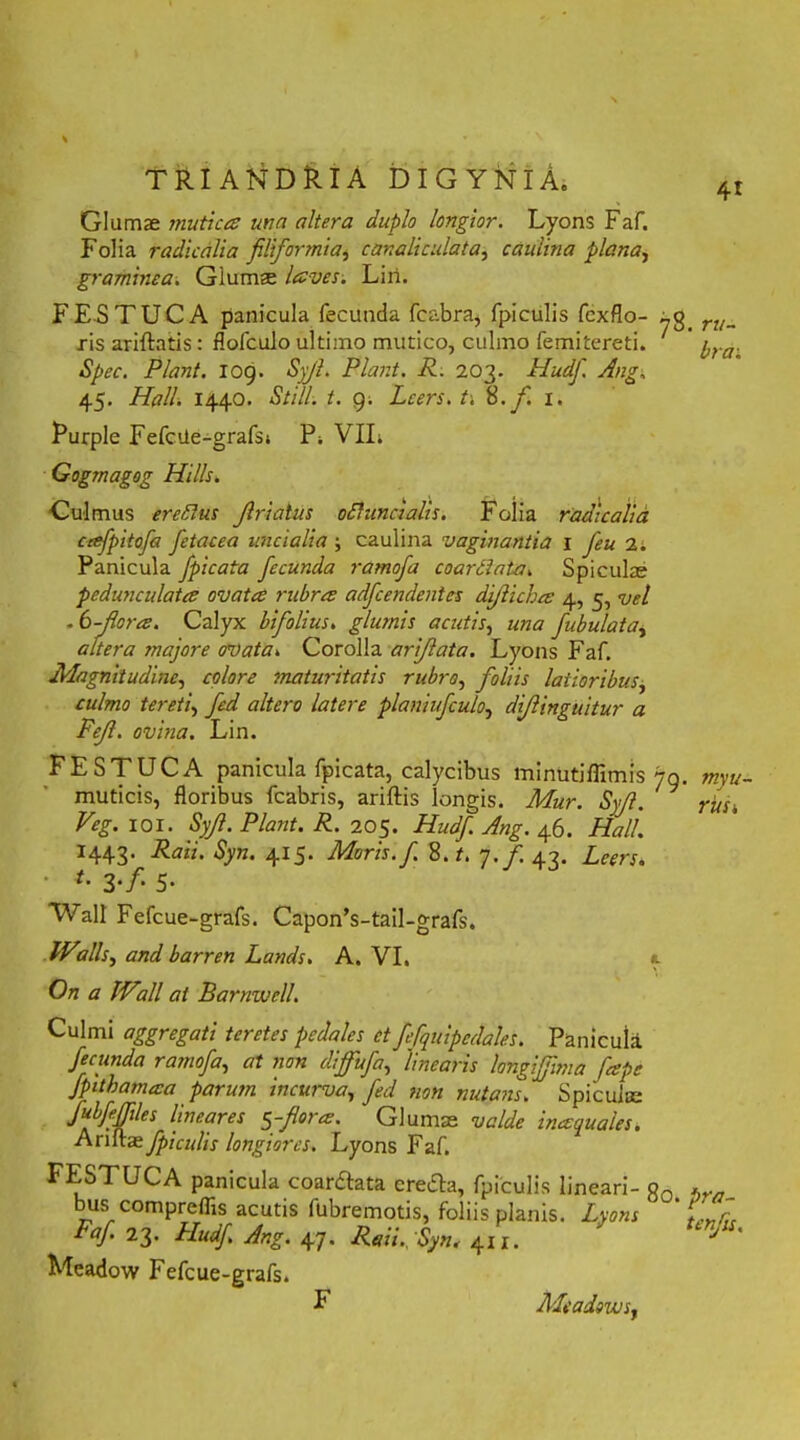 TRIANDRIA DIGYNIA. 41
Glumæ muticæ una altera duplo longior. Lyons Faſ.
Folia radicalia filiformia, canaliculata, caulina plana,
graminea. Glumæ læves. Lin.
FESTUCA panicula ſecunda ſcabra, ſpiculis ſexflo- 78. ru-
ris ariſtatis: floſculo ultimo mutico, culmo ſemitereti. bra.
Spec. Plant. 109. Syſt. Plant. R. 203. Hudſ. Ang.
45. Hall. 1440. Still. t. 9. Leers. t. 8. f. 1.
Purple Feſcue-graſs. P. VII.
Gogmagog Hills.
Culmus erectus ſtriatus octuncialis. Folia radicalia
cæſpitoſa ſetacea uncialia; caulina vaginantia 1 ſeu 2.
Panicula ſpicata ſecunda ramoſa coarctata. Spiculæ
pedunculatæ ovatæ rubræ adſcendentes diſtichæ 4, 5, vel
6-floræ. Calyx bifolius. glumis acutis, una ſubulata,
altera majore ovata. Corolla ariſtata. Lyons Faſ.
Magnitudine, colore maturitatis rubro, foliis latioribus,
culmo tereti, ſed altero latere planiuſculo, diſtinguitur a
Feſt. ovina. Lin.
FESTUCA panicula ſpicata, calycibus minutiſſimis 79. myu-
muticis, floribus ſcabris, ariſtis longis. Mur. Syſt. rus.
Veg. 101. Syſt. Plant. R. 205. Hudſ. Ang. 46. Hall.
1443. Raii. Syn. 415. Moris. ſ. 8. t. 7. f. 43. Leers.
t. 3. f. 5.
Wall Feſcue-graſs. Capon's-tail-graſs.
Walls, and barren Lands. A. VI.
On a Wall at Barnwell.
Culmi aggregati teretes pedales et ſeſquipedales. Panicula
ſecunda ramoſa, at non diffuſa, linearis longiſſima ſæpe
ſpithamæa parum incurva, ſed non nutans. Spiculæ
ſubſeſſiles lineares 5-floræ. Glumæ valde inæquales.
Ariſtæ ſpiculis longiores. Lyons Faſ.
FESTUCA panicula coarctata erecta, ſpiculis lineari- 80. pra-
bus compreſſis acutis ſubremotis, foliis planis. Lyons tenſis.
Faſ. 23. Hudſ. Ang. 47. Raii. Syn. 411.
Meadow Feſcue-graſs.
F Meadows,